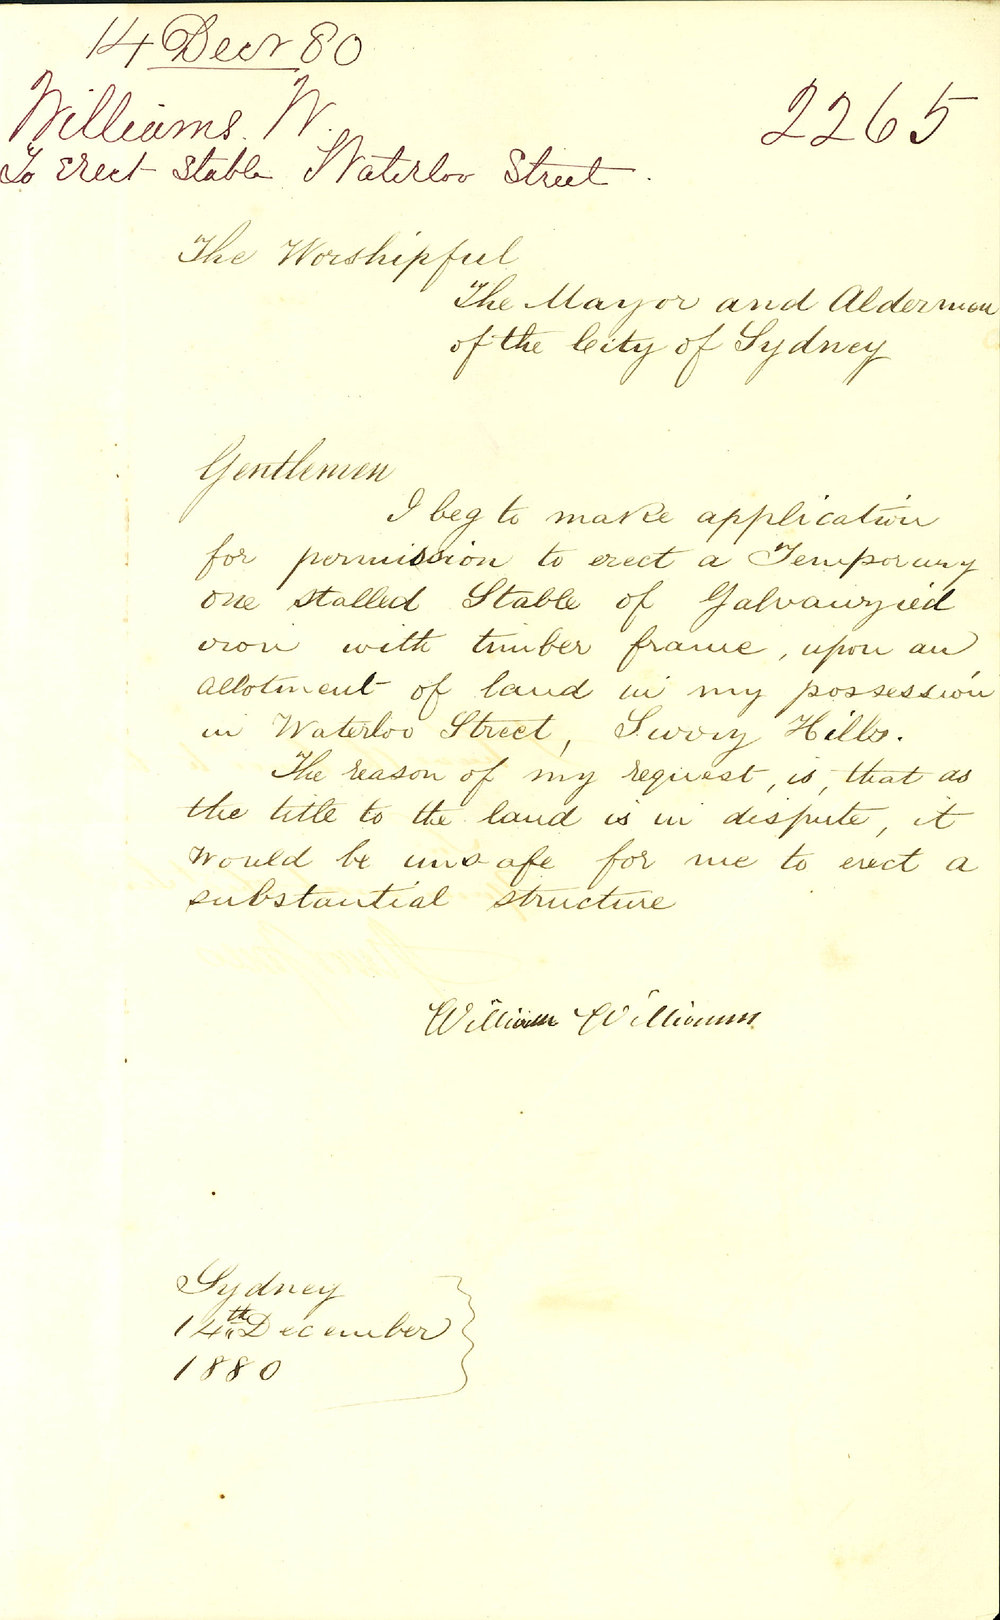 14 Decr 80
Williams. W.
2265
To Erect Stable Waterloo Street.
The Worshipful
The Mayor and Aldermen
of the City of Sydney
Gentlemen
I beg to make application
for permission to erect a Temporary
one stalled Stable of Galvanzied
iron with timber frame, upon an
allotment of land in my possession
in Waterloo Street, Surry Hills.
The reason of my request, is, that as
the title to the land is in dispute, it
would be unsafe for me to erect a
substantial structure
William Williams
Sydney
14th December
1880